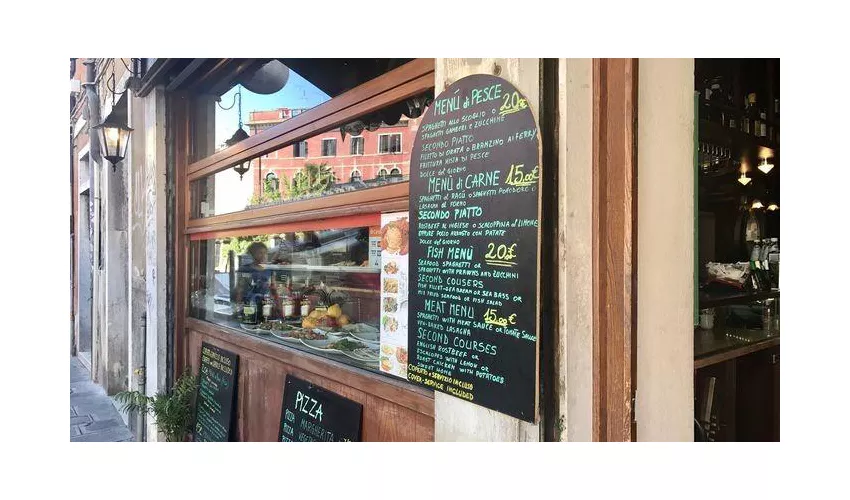 MENÚ di PESCE 20€
SPAGHETTI ALLO SCOGLIO O
SPAGHETTI GAMBERI E ZUCCHINE
SECONDO PIATTO
FILETTO DI ORATA O BRANZINO AI FERRY
FRITTURA MISTA DI PESCE
DOLCE DEL GIORNO
MENÚ di CARNE 15,00€
SPAGHETTI AL RAGÚ O SPAGHETTI POMODORO O
LASAGNA AL FORNO
SECONDO PIATTO
ROSTBEEF AL INGLESE O SCALOPPINA AL LIMONE
OPPURE POLLO ARROSTO CON PATATE
DOLCE DEL GIORNO
FISH MENÚ 20£
SEAFOOD SPAGHETTI OR
SPAGHETTI WITH PRAWNS AND ZUCCHINI
SECOND COUSERS
FISH FILLET-SEA BREAM OR SEA BASS OR
MIX FRIED SEAFOOD OR FISH SALAD
MEAT MENÚ 15,00€
SPAGHETTI WITH MEAT SAUCE OR TOMATOE SAUCE
OVEN-BAKED LASAGNA
SECOND COURSES
ENGLISH ROSTBEEF OR
ESCALOPES WITH LEMON OR
ROAST CHICKEN WITH POTATOES
COPERTO E SERVIZIO INCLUSO
COVER-SERVICE INCLUDED
PIZZA
PIZZA MARGHERITA
PIZZA